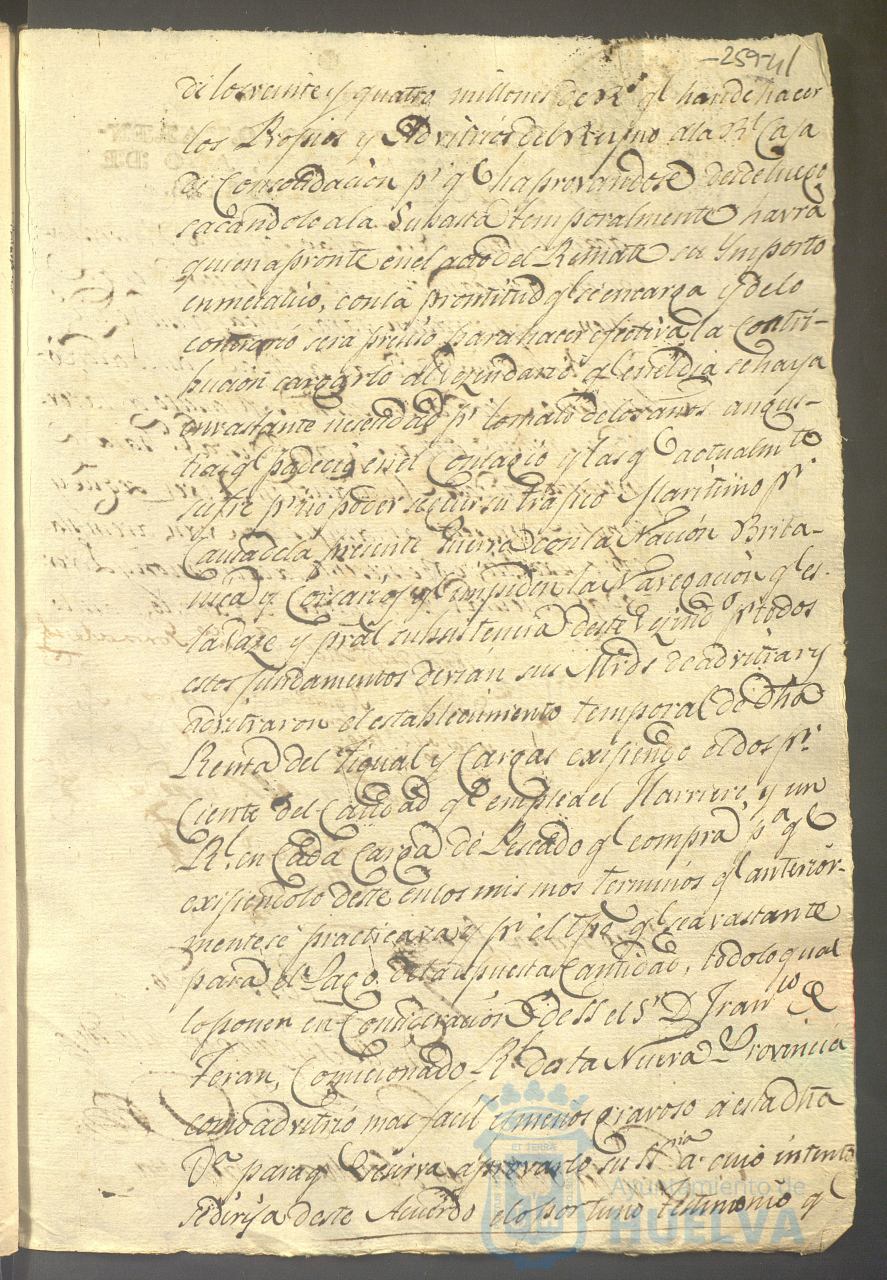 -259-41
de los veinte y quatro millones de R.s q.e han de hacer
los Propios y Advitrios del Reyno a la R.l Caja
de Consolidación p.r q.e haprovandose desde luego
sacandolo a la Subasta temporalmente havrá
quien apronte en el acto del Remate su Ymporto
en metalico, con la prontitud q.e se encarga y de lo
contrario será preciso para hacer efectiva la contri-
bucion cargarlo al Vezindario q.e en el dia se haya
en vastante necesidad p.r lo malo de los años angus-
tias q.e padeció en el Contagio y las q.e actualm.te
sufre p.r no poder seguir su trafico Maritimo p.r
Causa de la presente Guerra con la Nación Brita-
nica y Corsarios q.e impiden la Navegación q.e es
la vaze y pral subsistencia deste Vezind.o p.r todos
estos fundamentos devian sus Mrds de advitrar y
advitraron el establecimiento temporal de dha
Renta del Tigual y Cargas exigiendo el dos p.r
Ciento del Caudad q.e emplea el Harriero, y un
R.l en Cada Carga de Pescado q.e compra, p.a q.e
exigiendolo deste en los mismos terminos q.e anterior-
mente se practicara y p.r el tpo q.e sea vastante
para el Pago de la apuesta Cantidad, todo lo qual
lo ponen en Consideración de SS el S.r D. Fran.co de
Teran, Comicionado R.l de esta Nueva Provincia
como advitrio mas facil y menos gravoso a esta dha
V.a para q.e se sirva aprovarlo su S.ria a cuio intento
se dirija deste Acuerdo el oportuno testimonio q.e
Ayuntamiento de
HUELVA